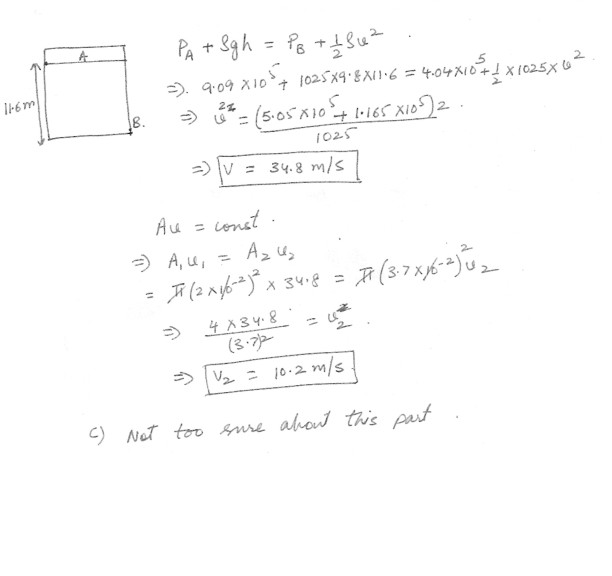 A
11.6m
B.
P_A + ρgh = P_B + ½ρv² .
⇒). 9.09 × 10⁵ + 1025×9.8×11.6 = 4.04×10⁵ + ½ × 1025 × v²
⇒ v² = (5.05 × 10⁵ + 1.165 × 10⁵) 2 .
1025
⇒) V = 34.8 m/s
Av = const .
⇒) A₁v₁ = A₂v₂
= π(2×10⁻²)² × 34.8 = π(3.7×10⁻²)² v₂
⇒) 4 × 34.8 = v₂ .
(3.7)²
⇒) V₂ = 10.2 m/s
c) Not too sure about this part .